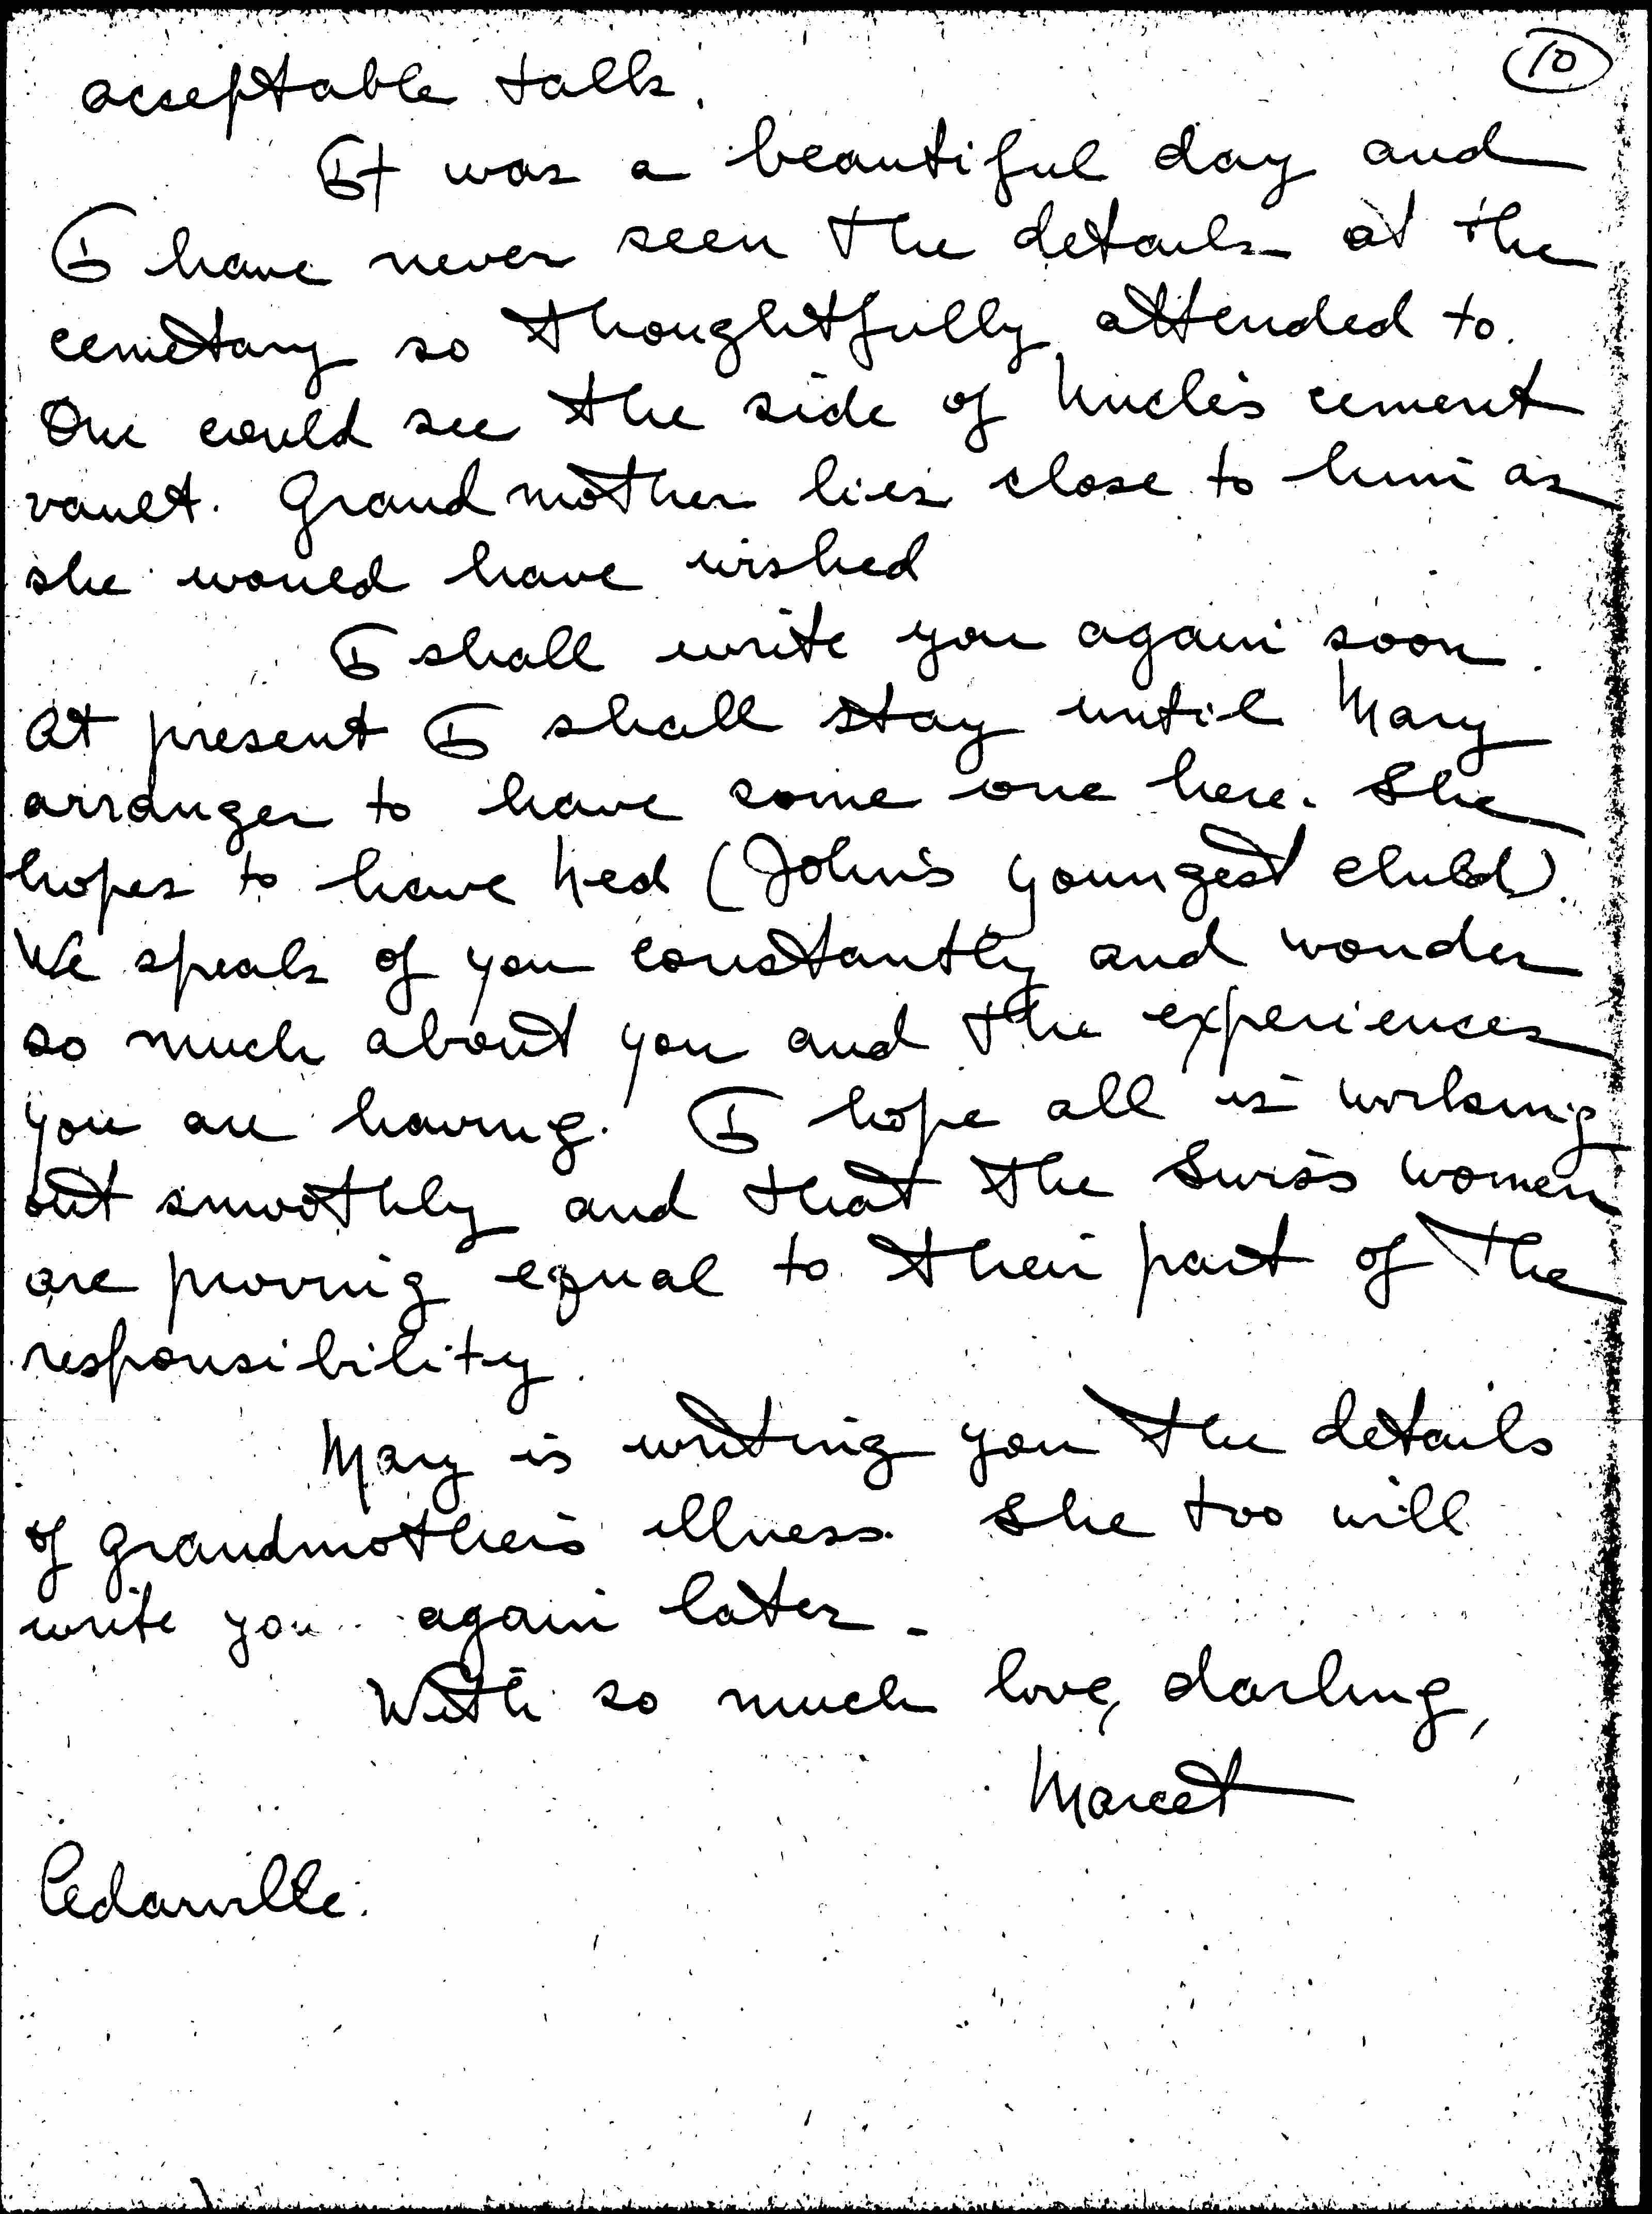 10
acceptable talk.
It was a beautiful day and
I have never seen the details at the
cemetary so thoughtfully attended to.
One could see the side of Uncle's cement
vault. Grandmother lies close to him as
she would have wished
I shall write you again soon.
At present I shall stay until Mary
arranges to have some one here. She
hopes to have Ned (John's youngest child).
We speak of you constantly and wonder
so much about you and the experiences
you are having. I hope all is working
out smoothly and that the Swiss women
are proving equal to their part of the
responsibility.
Mary is writing you the details
of grandmother's illness. She too will
write you again later.
With so much love, darling,
Marcet
Cedarville.